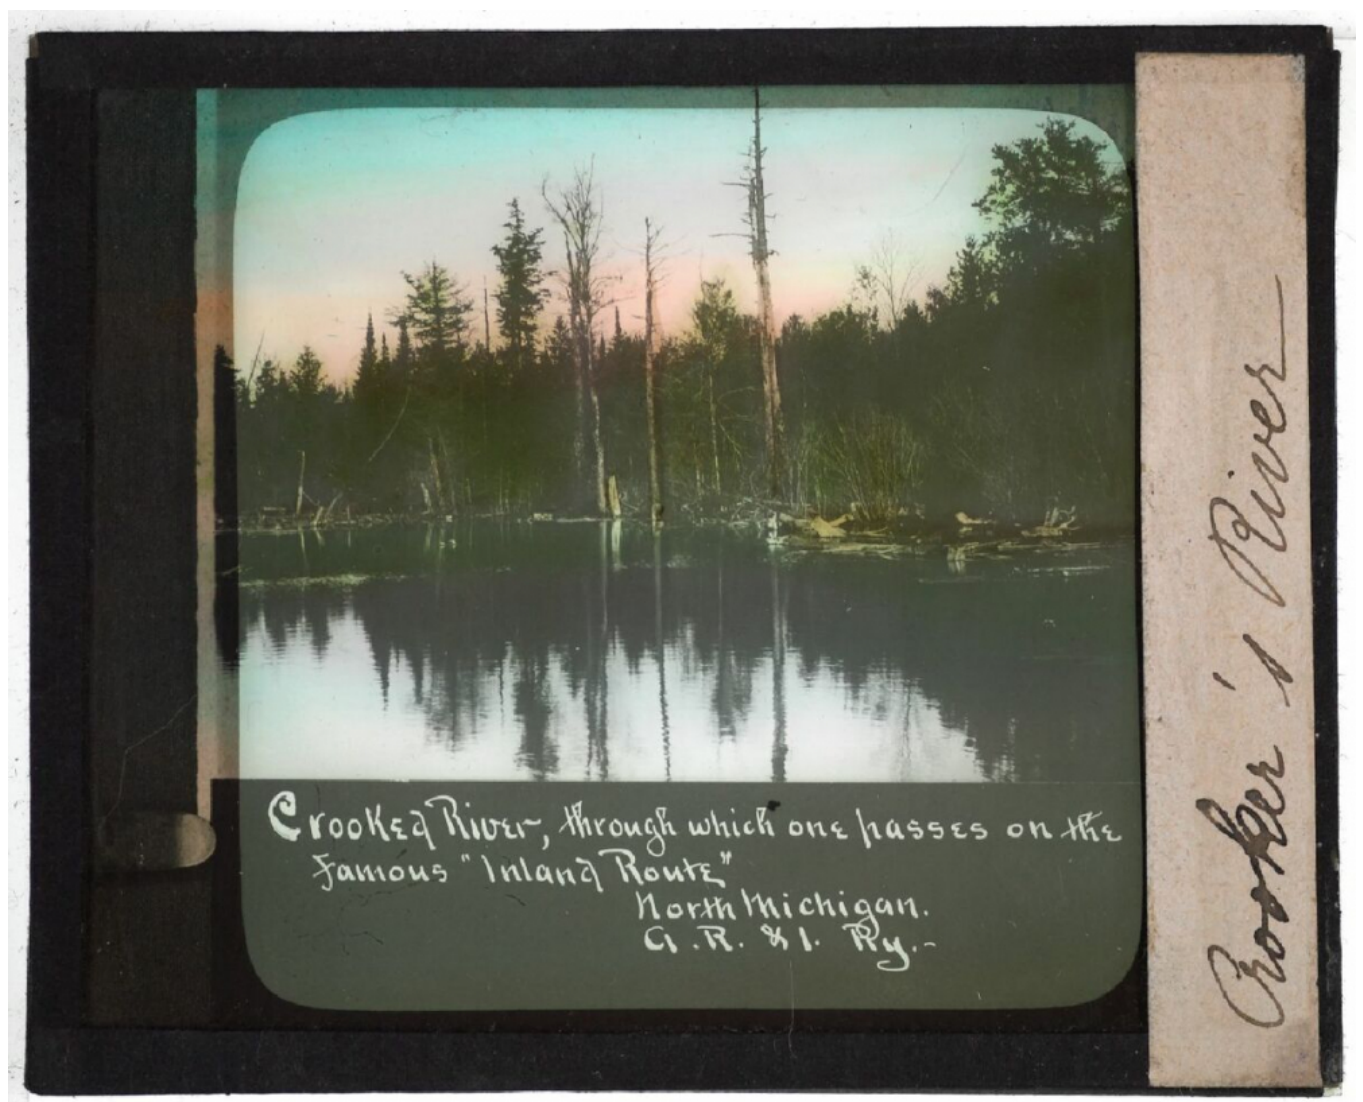 Crooked River, through which one passes on the
famous "Inland Route"
North Michigan.
G.R. & I. Ry.-
Crooker's River